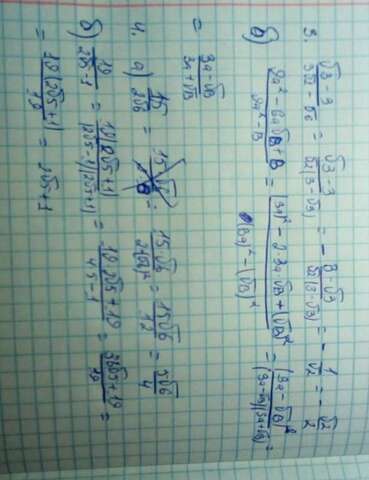 3. (√3 - 3)/(3√2 - √6) = (√3 - 3)/(√2(3 - √3)) = - (3 - √3)/(√2(3 - √3)) = - 1/√2 = - √2/2
б) (9a² - 6a√B + B)/(9a² - B) = ((3a)² - 2·3a·√B + (√B)²)/((3a)² - (√B)²) = (3a - √B)²/((3a - √B)(3a + √B))
= (3a - √B)/(3a + √B)
4. а) 15/(2√6) = 15√6/(2(√6)²) = 15√6/12 = 5√6/4
б) 19/(2√5 - 1) = 19(2√5 + 1)/((2√5 - 1)(2√5 + 1)) = (19·2√5 + 19)/(4·5 - 1) = (38√5 + 19)/19 =
= 19(2√5 + 1)/19 = 2√5 + 1